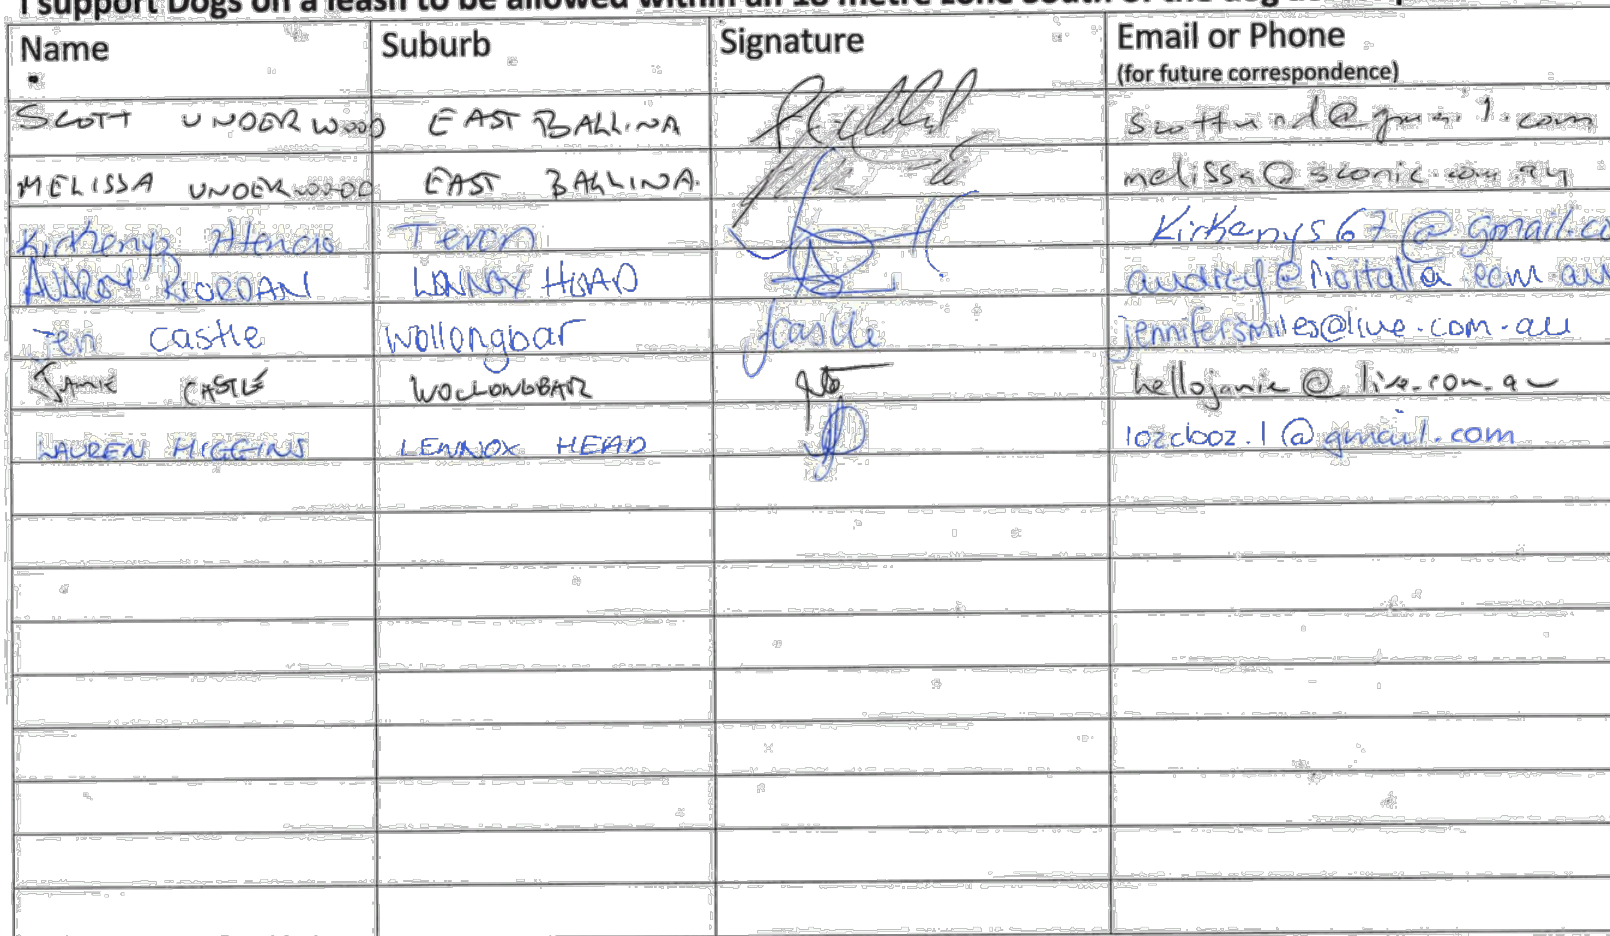 I support Dogs on a leash to be allowed within an 18 metre zone south of the dog
Name Suburb Signature Email or Phone
(for future correspondence)
SCOTT UNDERWOOD EAST BALLINA
MELISSA UNDERWOOD EAST BALLINA. melissa@
Kirkenys Atencio Teven Kirkenys67@gmail.co
AUDREY RIORDAN LENNOX HEAD
Jen Castle Wollongbar JCastle jennifersmiles@live.com.au
JAMIE CASTLE WOLLONGBAR hellojamie@live.com.au
LAUREN HIGGINS LENNOX HEAD lozcboz.1@gmail.com